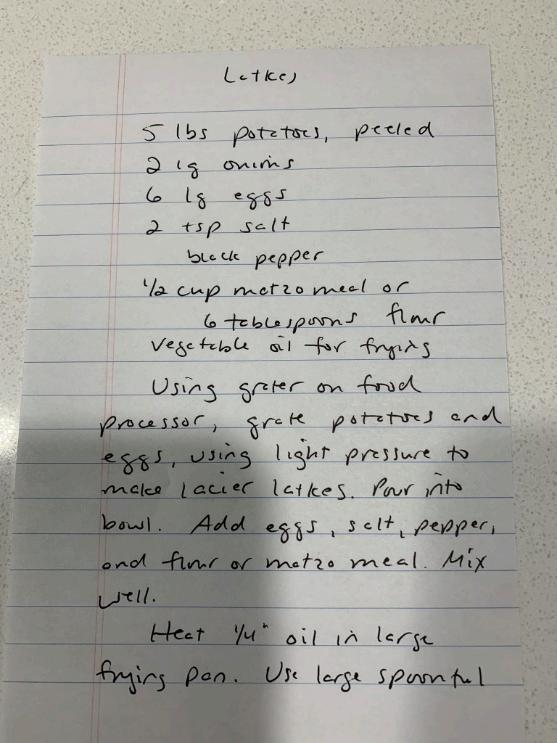 Latkes
5 lbs potatoes, peeled
2 lg onions
6 lg eggs
2 tsp salt
black pepper
1/2 cup matzo meal or
6 tablespoons flour
vegetable oil for frying
Using grater on food
processor, grate potatoes and
eggs, using light pressure to
make lacier latkes. Pour into
bowl. Add eggs, salt, pepper,
and flour or matzo meal. Mix
well.
Heat 1/4" oil in large
frying pan. Use large spoonful